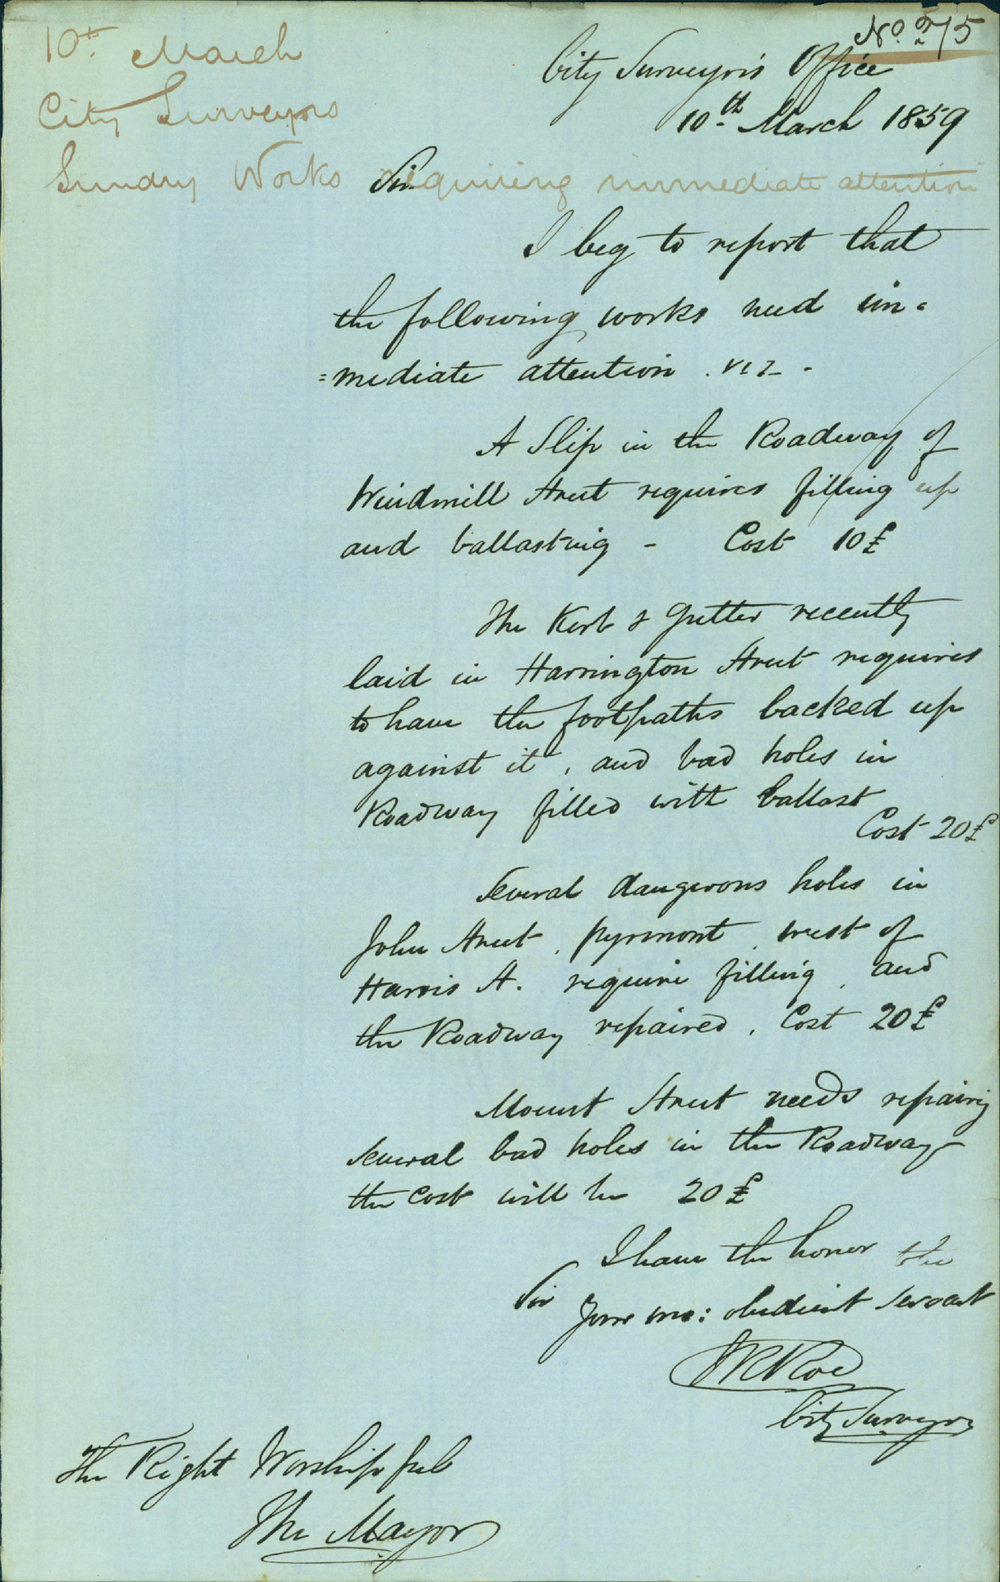 No. 275
10th March
City Surveyors
Sundry Works requiring immediate attention
City Surveyor's Office
10th March 1859
Sir
I beg to report that
the following works need im=
=mediate attention. viz -
A Slip in the Roadway of
Windmill Street requires filling up
and ballasting - Cost 10£
The Kerb & Gutter recently
laid in Harrington Street requires
to have the footpaths backed up
against it, and bad holes in
Roadway filled with ballast
Cost 20£
Several dangerous holes in
John Street, Pyrmont, west of
Harris St. require filling, and
the Roadway repaired. Cost 20£
Mount Street needs repairing
several bad holes in the Roadway
the Cost will be 20£
I have the honor
Sir
Your mo: obedient Servant
Roe
City Surveyor
The Right Worshipful
The Mayor